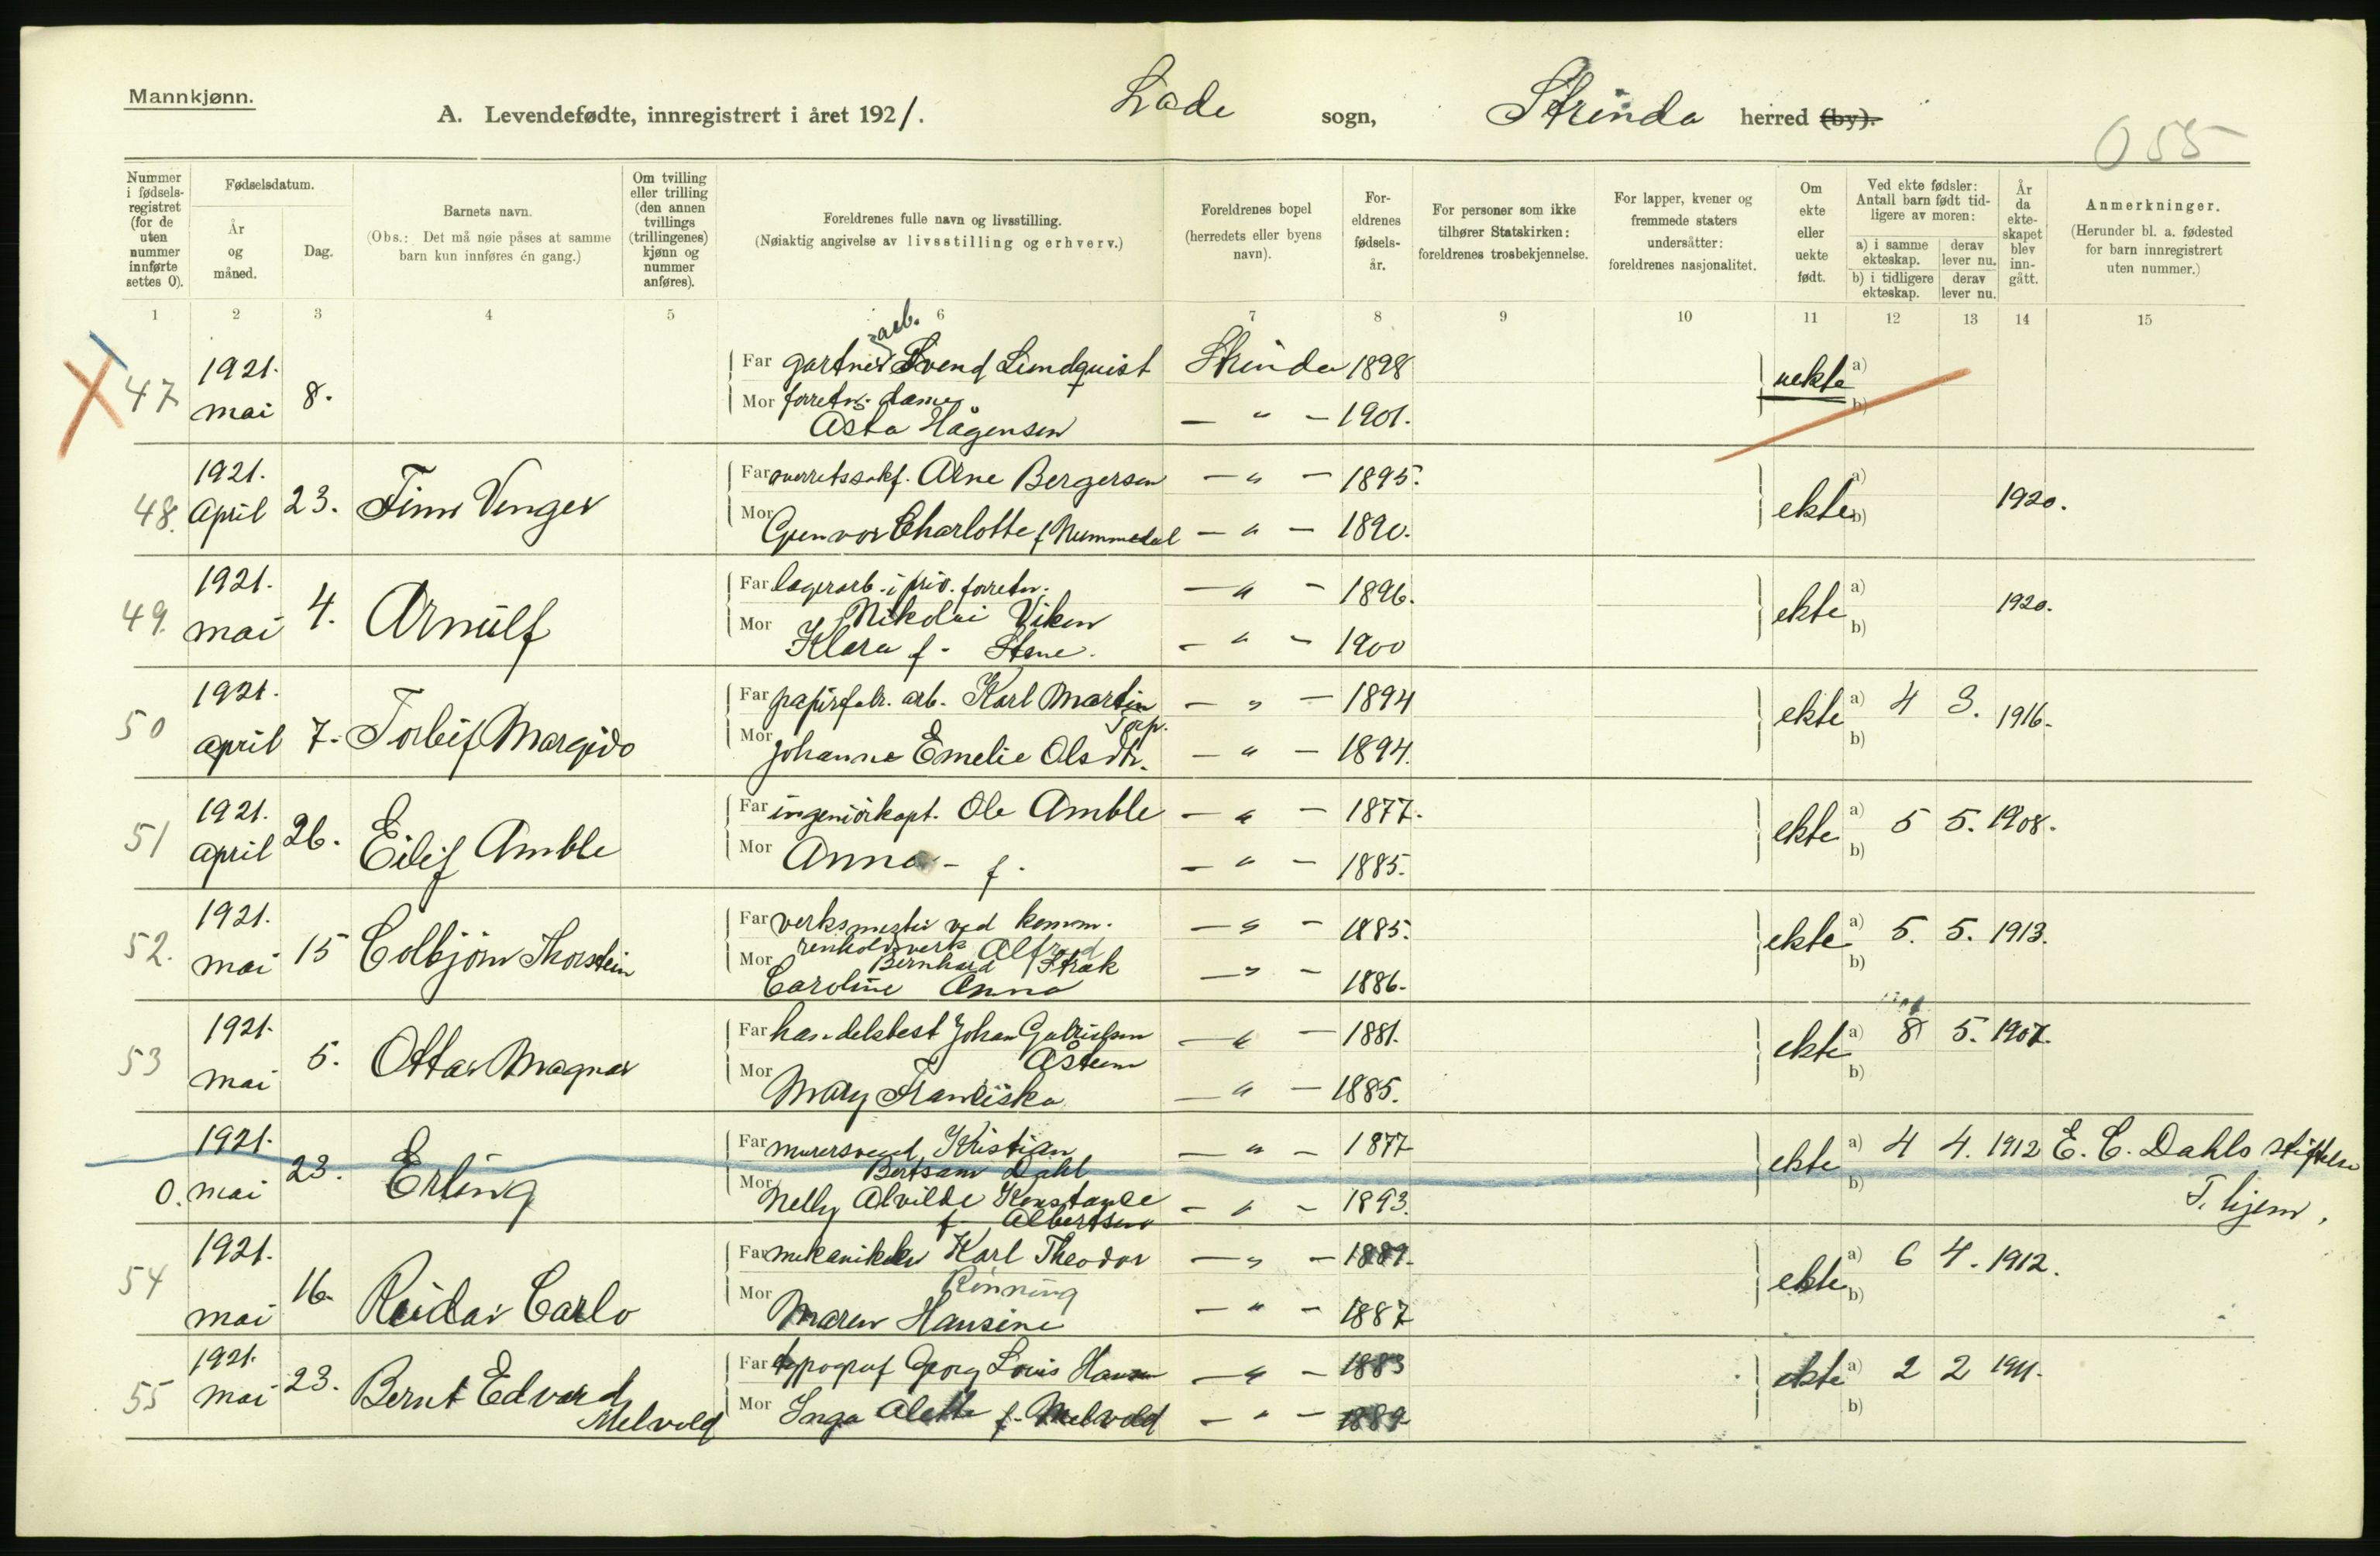 Mannkjønn.
A. Levendefødte, innregistrert i året 1921. Lade sogn, Strinda herred (by).
055
Nummer i fødselsregistret (for de uten nummer innførte settes 0).
Fødselsdatum.
År og måned.
Dag.
Barnets navn.
(Obs.: Det må nøie påses at samme barn kun innføres én gang.)
Om tvilling eller trilling (den annen tvillings (trillingenes) kjønn og nummer anføres).
Foreldrenes fulle navn og livsstilling.
(Nøiaktig angivelse av livsstilling og erhverv.)
Foreldrenes bopel (herredets eller byens navn).
Foreldrenes fødselsår.
For personer som ikke tilhører Statskirken: foreldrenes trosbekjennelse.
For lapper, kvener og fremmede staters undersåtter: foreldrenes nasjonalitet.
Om ekte eller uekte født.
Ved ekte fødsler: Antall barn født tidligere av moren:
a) i samme ekteskap. derav lever nu.
b) i tidligere ekteskap. derav lever nu.
År da ekteskapet blev inngått.
Anmerkninger.
(Herunder bl. a. fødested for barn innregistrert uten nummer.)
1 2 3 4 5 6 7 8 9 10 11 12 13 14 15
47 1921. mai 8. Far gartner arb. Svend Lundquist Strinda 1898 uekte a) b)
Mor forretn. dame Asta Hågensen — " — 1901.
48. 1921. April 23. Finn Venger Far overretssakf. Arne Bergersen — " — 1895. ekte a) b) 1920.
Mor Gunvor Charlotte f. Nummedal — " — 1890.
49. 1921. mai 4. Arnulf Far lagerarb. i priv. forretn. Nikolai Viken — " — 1896. ekte a) b) 1920.
Mor Klara f. Stene. — " — 1900
50 1921. april 7. Torleif Margido Far papirfabr. arb. Karl Martin Torp. — " — 1894 ekte a) 4 3. 1916. b)
Mor Johanne Emelie Olsdtr. — " — 1894.
51 1921. april 26. Eilif Amble Far ingeniørkapt. Ole Amble — " — 1877. ekte a) 5 5. 1908. b)
Mor Anna - f. — " — 1885.
52. 1921. mai 15 Colbjörn Thorstein Far verksmester ved komm. renholdsverk Alfred Bernhard Strøk — " — 1885. ekte a) 5. 5. 1913. b)
Mor Caroline Anna — " — 1886.
53 1921. mai 5. Ottar Magnar Far handelsbest Johan Gabrielsen Åsteen — " — 1881. ekte a) 8 5. 1907. b)
Mor Mary Franciska — " — 1885.
0. 1921. mai 23. Erling Far murersvend Kristian Bertsam Dahl — " — 1877 ekte a) 4 4. 1912 b) E. C. Dahls stiftelse T. hjem.
Mor Nelly Alvilde Konstance f. Albertsen — " — 1893.
54 1921. mai 16. Reidar Carlo Far mekaniker Karl Theodor Rönning — " — 1889. ekte a) 6 4. 1912. b)
Mor Maren Hansine — " — 1887
55 1921. mai 23. Bernt Edvard Melvold Far typograf Georg Louis Hansen — " — 1883 ekte a) 2 2 1911. b)
Mor Inga Alette f. Melvold — " — 1889